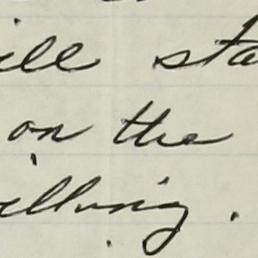 ill sta
on the